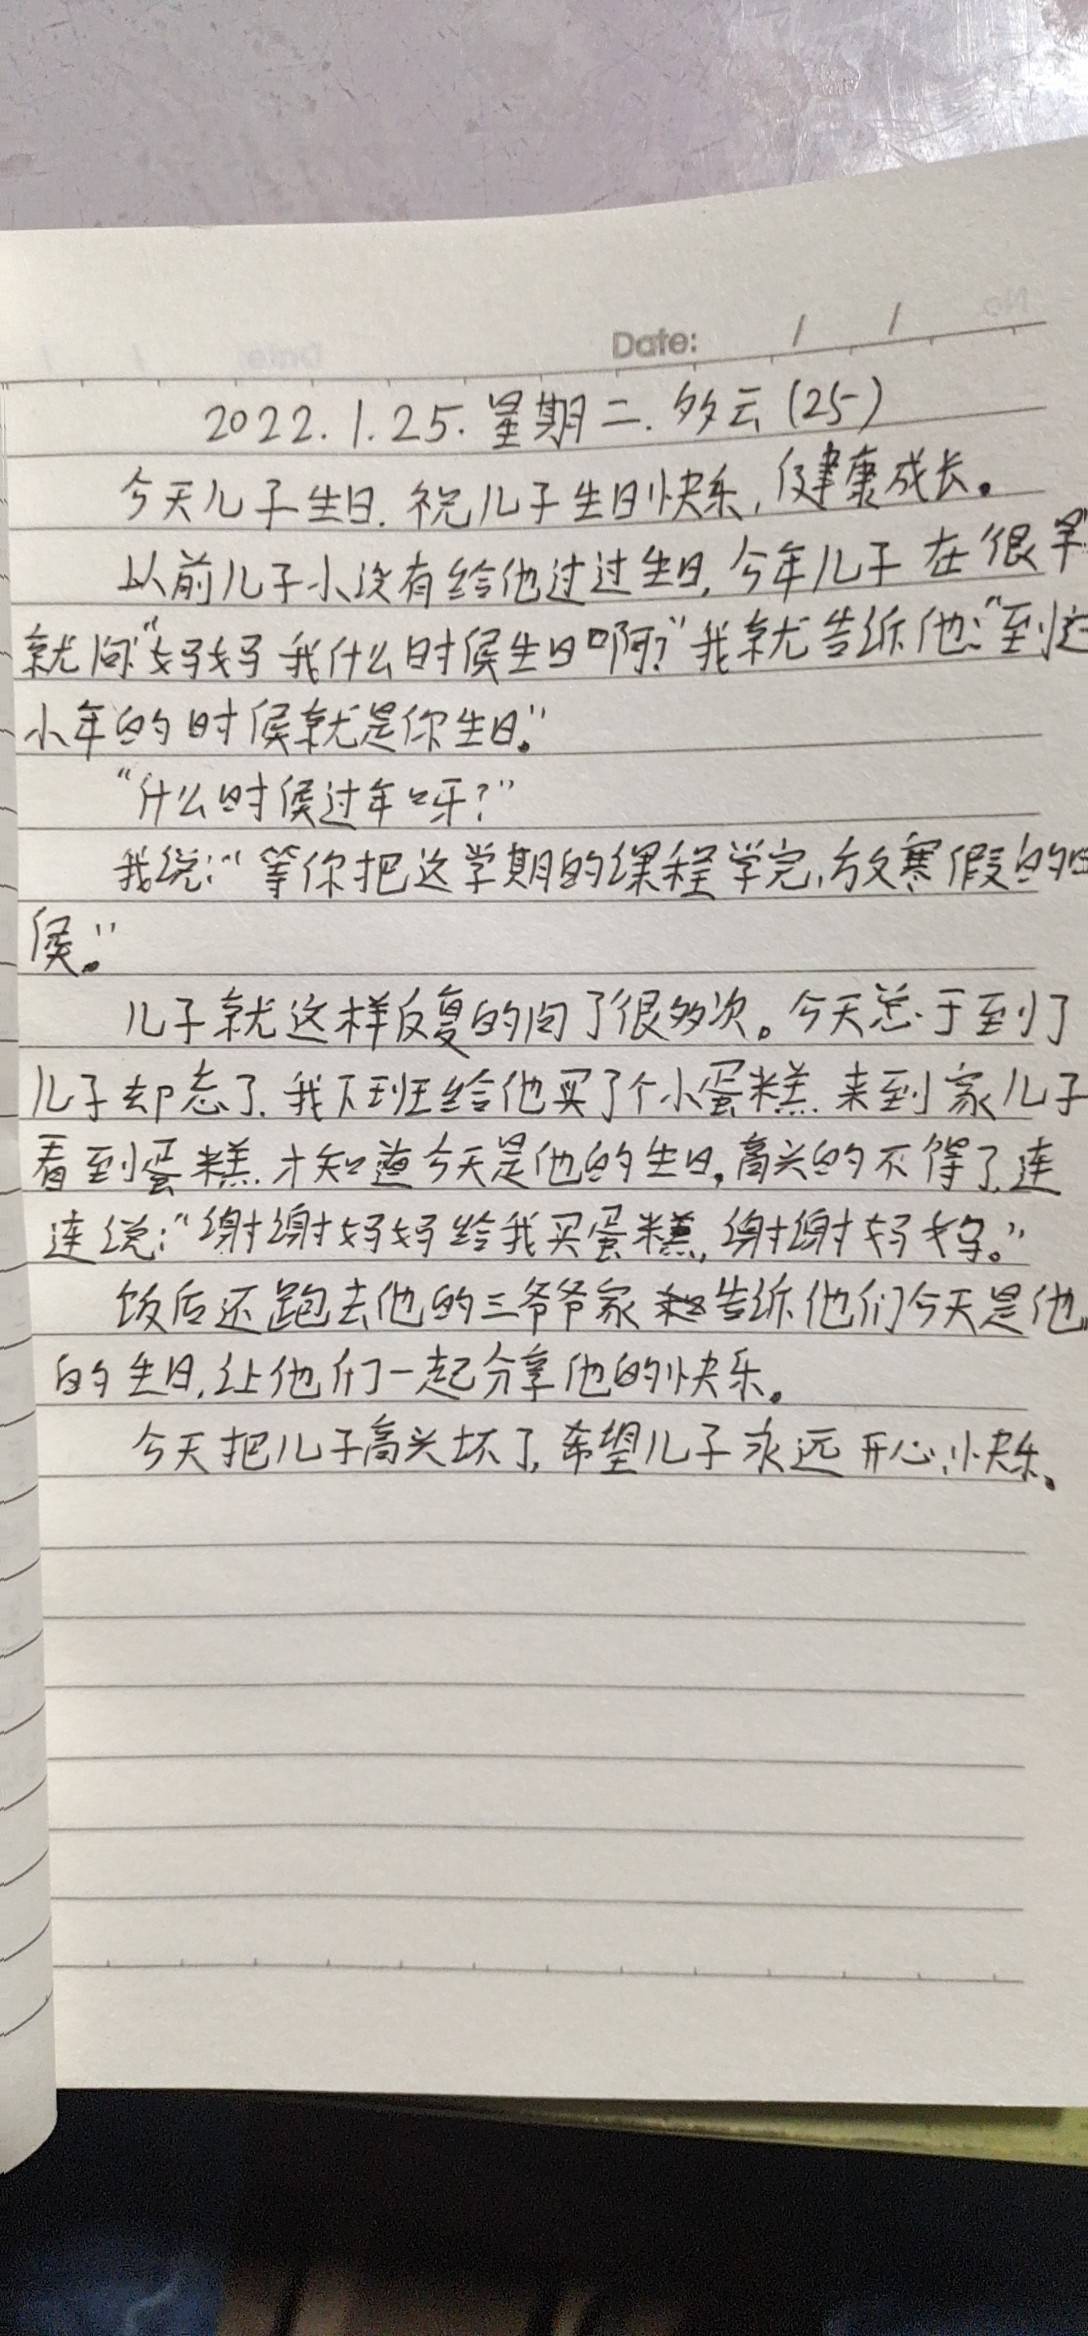 Date: / /
2022.1.25.星期二.多云(25)
今天儿子生日.祝儿子生日快乐,健康成长。
以前儿子小没有给他过过生日,今年儿子在很早
就问“妈妈我什么时候生日啊?”我就告诉他:“到过
小年的时候就是你生日。”
“什么时候过年呀?”
我说:“等你把这学期的课程学完,放寒假的时
候。”
儿子就这样反复的问了很多次。今天总于到了
儿子却忘了.我下班给他买了个小蛋糕.来到家儿子
看到蛋糕.才知道今天是他的生日,高兴的不得了,连
连说:“谢谢妈妈给我买蛋糕,谢谢妈妈。”
饭后还跑去他的三爷爷家告诉他们今天是他
的生日,让他们一起分享他的快乐。
今天把儿子高兴坏了,希望儿子永远开心,快乐。